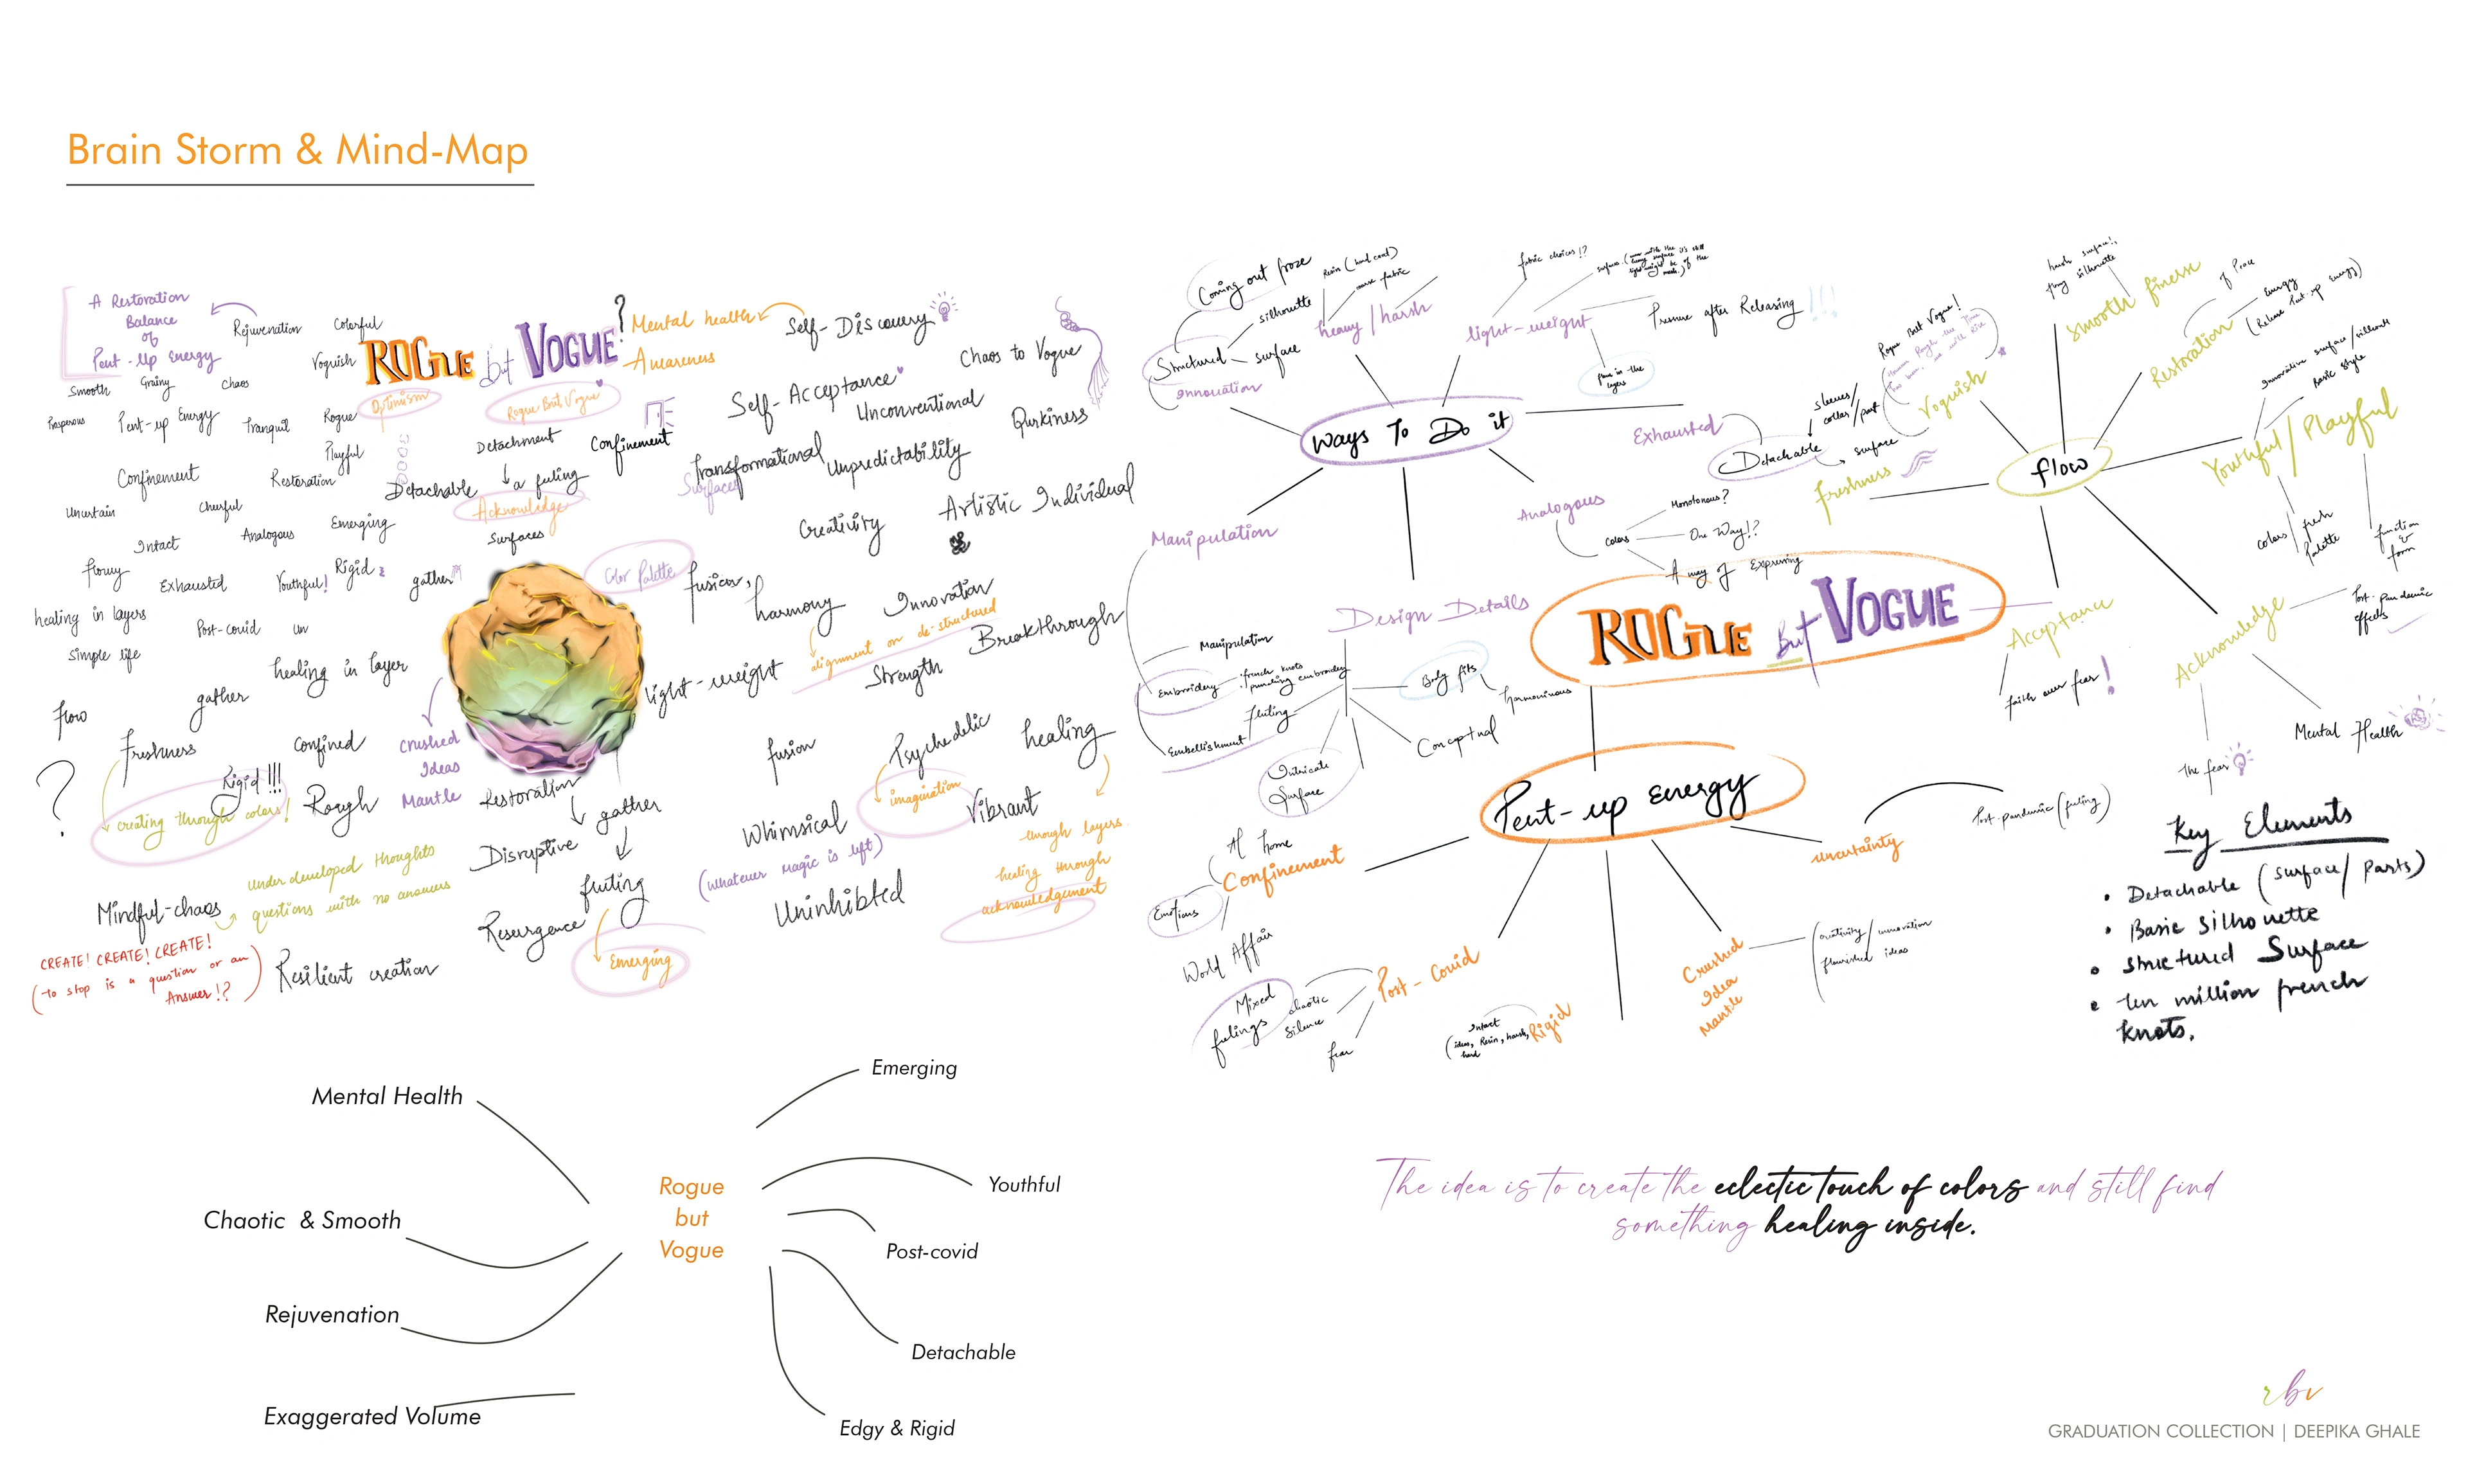 Brain Storm & Mind-Map
A Restoration
Balance
of
Pent-Up Energy
Rejuvenation
Colorful
Voguish
ROGUE but VOGUE?
Mental health
Awareness
Self-Discovery
Chaos to Vogue
Smooth
Grainy
Chaos
Optimism
Rogue But Vogue
Self-Acceptance
Unconventional
Qurkiness
Prosperous
Pent-up Energy
Tranquil
Rogue
Playful
Detachment
Confinement
Transformational
Surfaces
Unpredictability
Confinement
Restoration
Detachable
a feeling
Acknowledge
Surfaces
Uncertain
Cheerful
Emerging
Creativity
Artistic Individual
Intact
Analogous
flowy
Exhausted
Youthful!
Rigid
gather
Color Palette
fusion,
harmony
Innovation
alignment or de-structured
Breakthrough
healing in layers
Post-covid
un
Simple life
healing in layer
light-weight
Strength
flow
gather
Freshness
Confined
Crushed
Ideas
Mantle
fusion
Psychedelic
healing
?
Rigid!!!
creating through colors!
Rough
Restoration
gather
imagination
Vibrant
Whimsical
(whatever magic is left)
through layers
healing through
acknowledgement
Under developed thoughts
questions with no answers
Disruptive
fluting
Mindful-chaos
Resurgence
Uninhibted
Emerging
CREATE! CREATE! CREATE!
(to stop is a question or an
Answer!?)
Resilient creation
Coming out froze
Resin (hard coat)
silhouette
heavy/harsh
Structured
surface
Innovation
fabric choices!?
light-weight
Pressure after Releasing !!!
Ways To Do it
Manipulation
Exhausted
sleeves/
collar/part
Detachable
surface
Analogous
Colors
Monotonous?
One Way!?
A way of Expressing
Design Details
Manipulation
Embroidery
french knots
Fluting
Embellishment
Body fits
harmonious
Conceptual
Intricate
Surface
ROGUE But VOGUE
Rogue But Vogue!
Voguish
Freshness
flow
harsh surface!,
silhouette
Smooth finesse
Restoration
of Peace
Energy
(Release Pent-up energy)
Youthful/Playful
Basic style
colors
fresh
Palette
function
&
form
Acceptance
faith over fear!
Acknowledge
Post-pandemic
effects
Mental Health
the fear
Pent-up energy
Confinement
At home
Emotions
World Affair
Post-Covid
Mixed
feelings
chaotic
Silence
fear
Rigid
Intact
(ideas, Resin, harsh,
hard
Crushed
Idea
Mantle
creativity/innovation
flourished ideas
Uncertainty
Post-pandemic (feeling)
Key Elements
• Detachable (surface/parts)
• Basic silhouette
• structured Surface
• ten million french
knots.
Mental Health
Chaotic & Smooth
Rejuvenation
Exaggerated Volume
Rogue
but
Vogue
Emerging
Youthful
Post-covid
Detachable
Edgy & Rigid
The idea is to create the eclectic touch of colors and still find
something healing inside.
rbv
GRADUATION COLLECTION | DEEPIKA GHALE